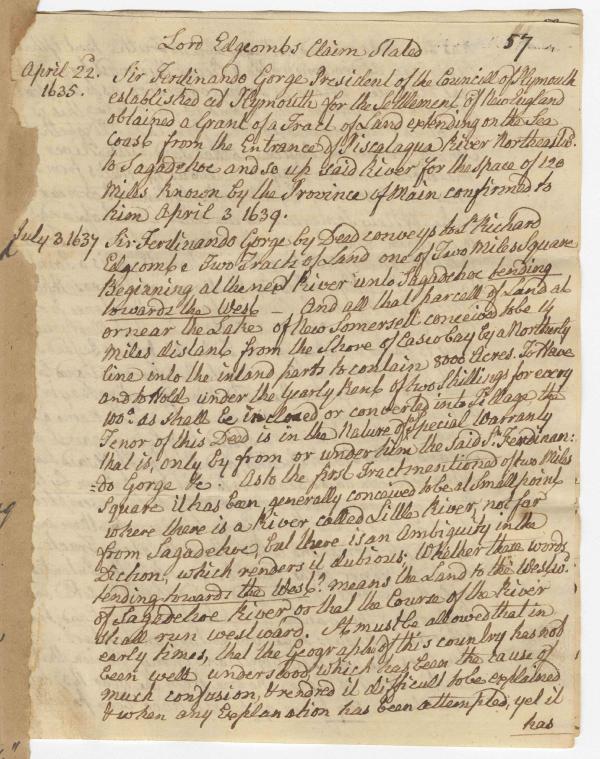 57
Lord Edgcombs Claim Stated
April 22d. Sir Ferdinando Gorge President of the Councill of Plymouth
1635. established at Plymouth for the Settlement of New England
obtained a Grant of a Tract of Land extending on the Sea
Coast from the Entrance of Piscataqua River Northeastwd.
to Sagadehoc and so up said River for the Space of 120
Miles known by the Province of Main confirmed to
him April 3 1639.
July 3 1637 Sir Ferdinando Gorge by Dead conveys to Sr. Richard
Edgcombe Two Tracts of Land one of Two Miles Square
Beginning at the next River unto Sagadehoc tending
towards the West — And all that parcell of Land at
or near the Lake of New Somersett conceived to be 14
Miles distant from the Shore of Casco Bay by a Northerly
line into the inland parts to contain 8000 Acres. To Have
and to Hold under the Yearly Rent of two Shillings for every
100a. as shall be inclosed or converted into Tillage the
Tenor of this Dead is in the Nature of Special Warranty
that is, only by from or under him the Said Sr. Ferdinan:
=do Gorge &c. As to the first Tract mentioned of two Miles
Square it has been generally conceived to be at Small point
where there is a River called Little River, not far
from Sagadehoc, but there is an Ambiguity in the
Diction, which renders it dubious, Whether those words
tending towards the West? means the Land to the Westwd.
of Sagadehoc River or that the Course of the River
shall run westward. It must be allowed that in
early times, that the Geography of this country has not
been well understood, which has been the cause of
much confusion, & rendred it difficult to be explained
& when any Explanation has been attempted, yet it
has